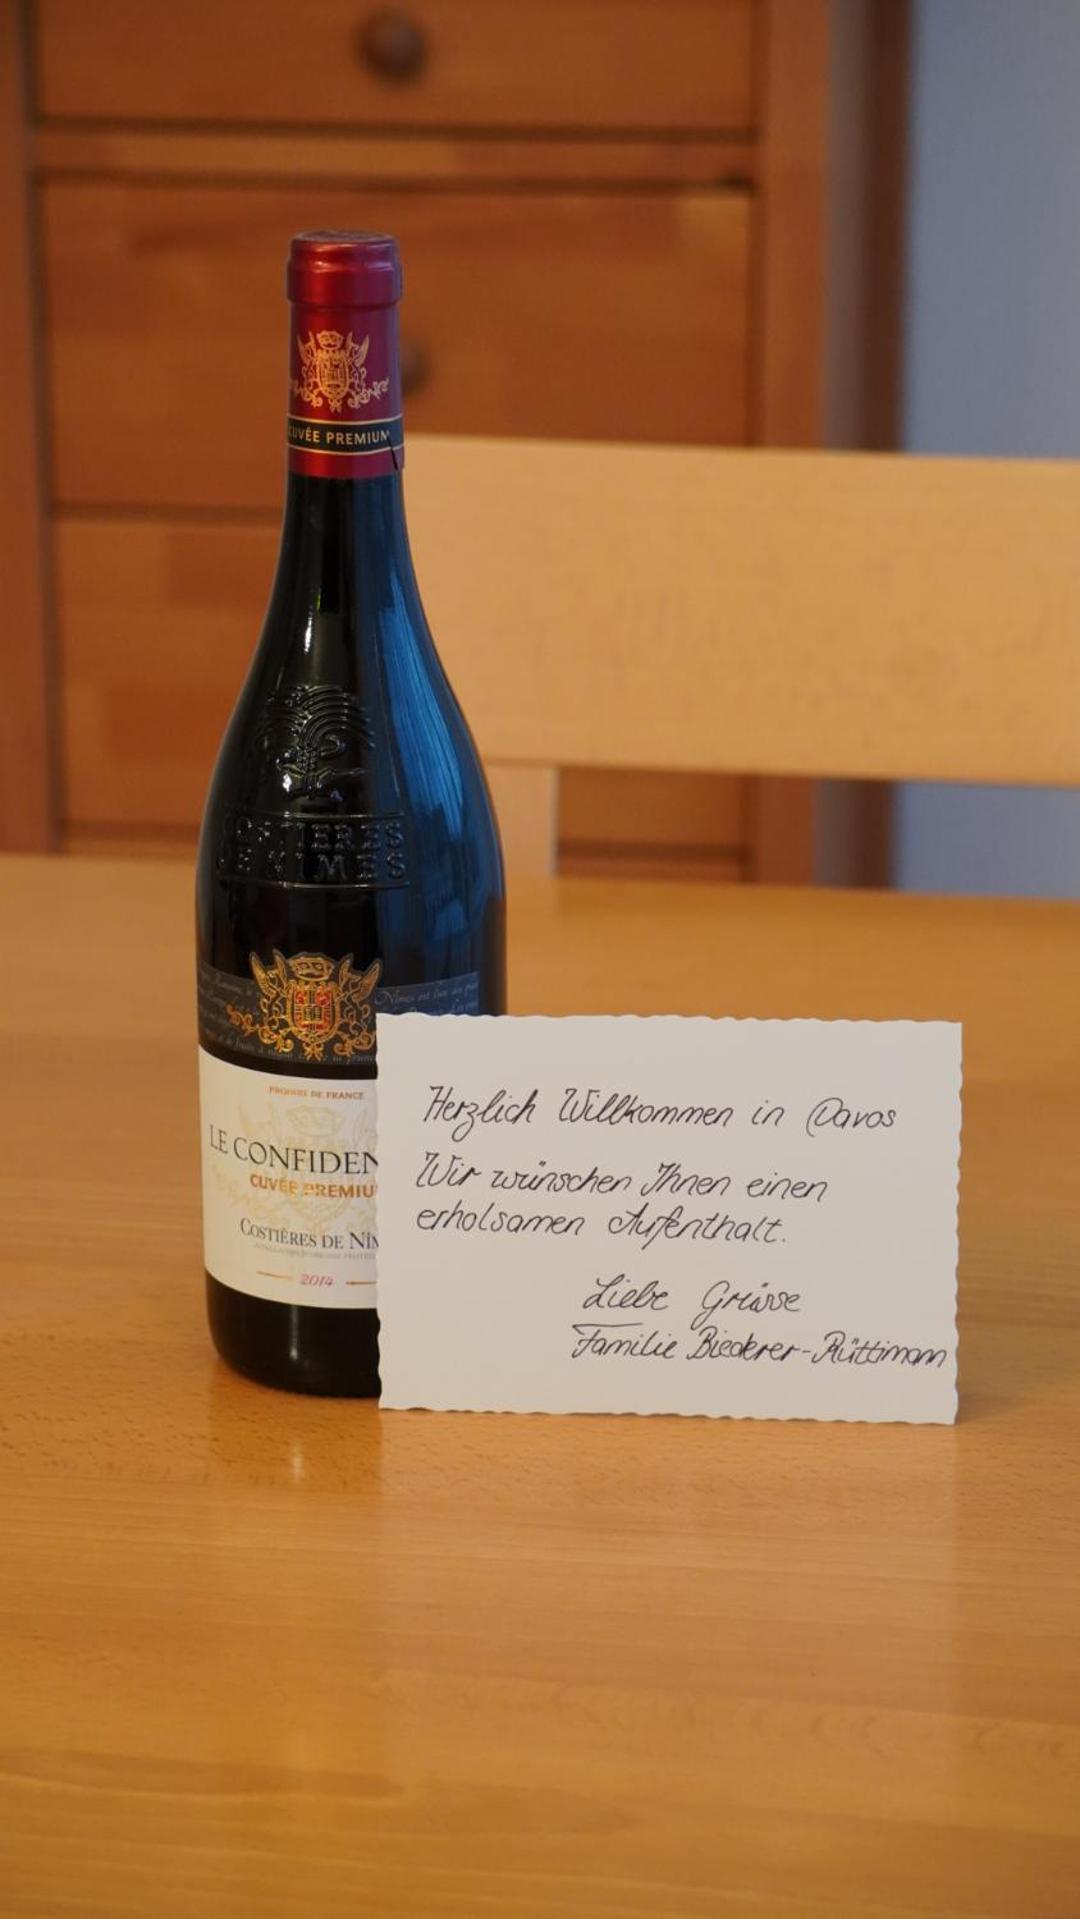 CUVÉE PREMIUM
COSTIÈRES
DE NIMES
Nîmes est
PRODUIT DE FRANCE
LE CONFIDEN
CUVÉE PREMIU
COSTIÈRES DE NÎM
2014
Herzlich Willkommen in Davos
Wir wünschen Ihnen einen
erholsamen Aufenthalt.
Liebe Grüsse
Familie Biederer-Rüttimann